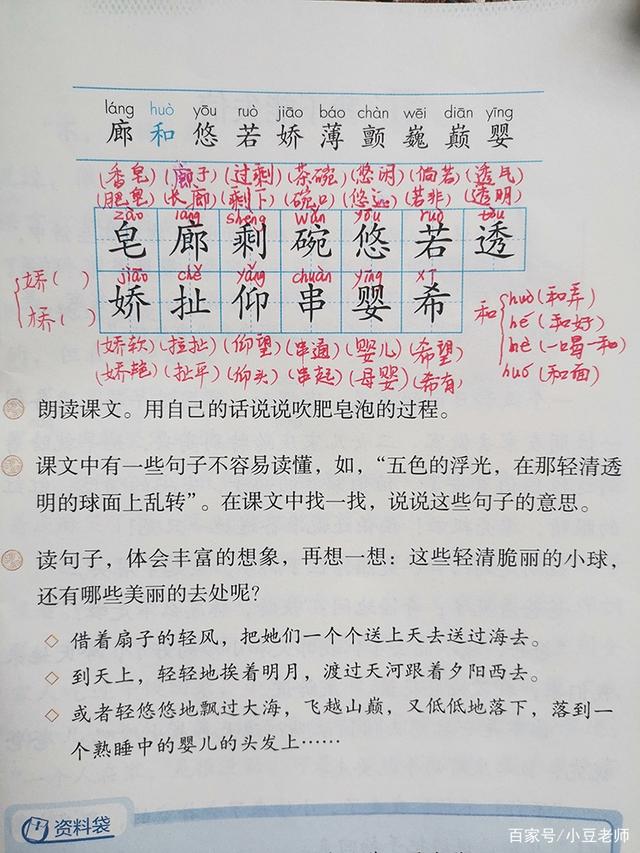 láng huò yōu ruò jiāo báo chàn wēi diān yīng
廊 和 悠 若 娇 薄 颤 巍 巅 婴
(香皂) (廊子) (过剩) (茶碗) (悠闲) (倘若) (透气)
(肥皂) (长廊) (剩下) (碗口) (悠远) (若非) (透明)
zào láng shèng wǎn yōu ruò tòu
皂 廊 剩 碗 悠 若 透
jiāo chě yǎng chuàn yīng xī
娇 扯 仰 串 婴 希
娇( )
桥( )
和 huò(和弄)
hé(和好)
hè(一唱一和)
huó(和面)
(娇软) (拉扯) (仰望) (串通) (婴儿) (希望)
(娇艳) (扯平) (仰头) (串起) (母婴) (希有)
朗读课文。用自己的话说说吹肥皂泡的过程。
课文中有一些句子不容易读懂,如,“五色的浮光,在那轻清透
明的球面上乱转”。在课文中找一找,说说这些句子的意思。
读句子,体会丰富的想象,再想一想:这些轻清脆丽的小球,
还有哪些美丽的去处呢?
◇ 借着扇子的轻风,把她们一个个送上天去送过海去。
◇ 到天上,轻轻地挨着明月,渡过天河跟着夕阳西去。
◇ 或者轻悠悠地飘过大海,飞越山巅,又低低地落下,落到一
个熟睡中的婴儿的头发上……
资料袋
百家号/小豆老师